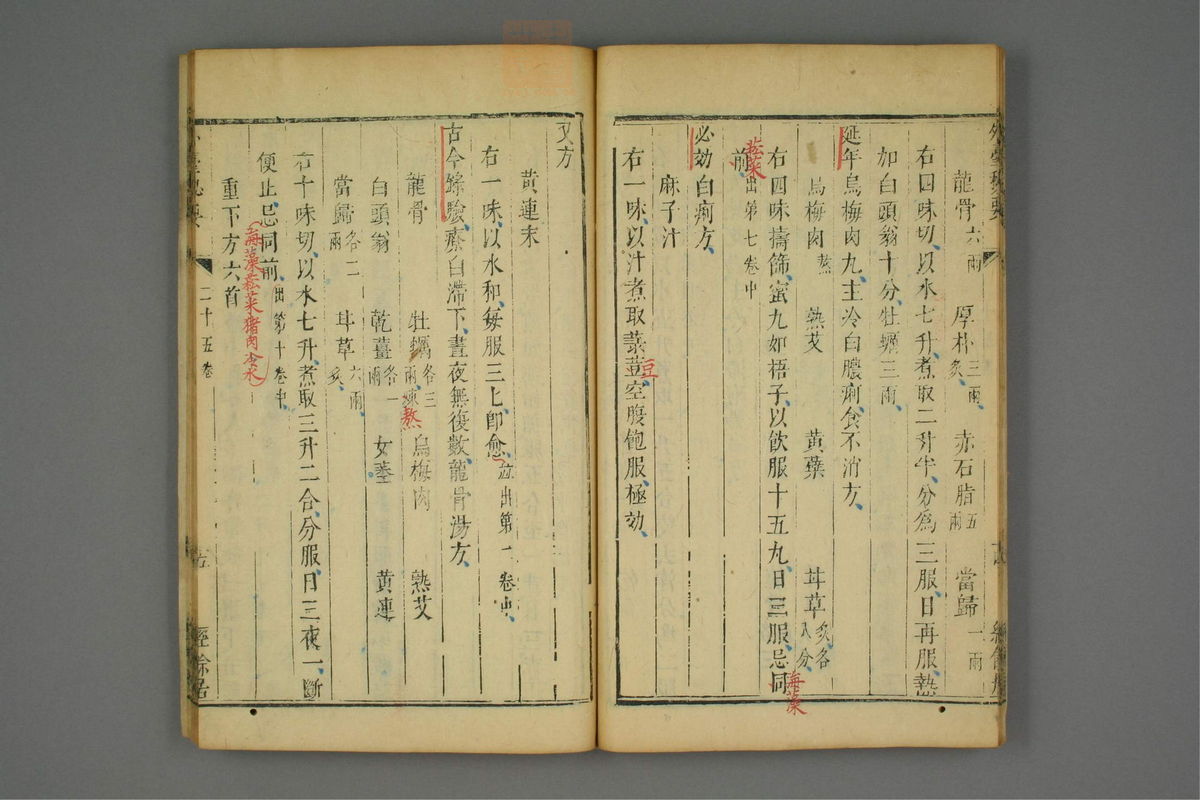 龍骨六兩 厚朴三兩炙 赤石脂五兩 當歸一兩
右四味切以水七升煮取二升半分爲三服日再服熱
加白頭翁十分牡蠣三兩
延年烏梅肉丸主冷白膿痢食不消方
烏梅肉熬 熟艾 黃蘗 甘草炙各八分
右四味擣篩蜜丸如梧子以飲服十五丸日三服忌同
海藻
菘菜
前出第七卷中
必効白痢方
麻子汁
右一味以汁煮取菉荳空腹飽服極効
豆
又方
黃連末
右一味以水和每服三匕卽愈並出第一卷中
古今錄驗療白滯下晝夜無復數龍骨湯方
龍骨 牡蠣各三兩煉 烏梅肉 熟艾
熬
白頭翁 乾薑各一兩 女萎 黃連
當歸各二兩 甘草六兩炙
右十味切以水七升煮取三升二合分服日三夜一斷
便止忌同前出第十卷中
海藻菘菜猪肉冷水
重下方六首
二十五卷
經餘居